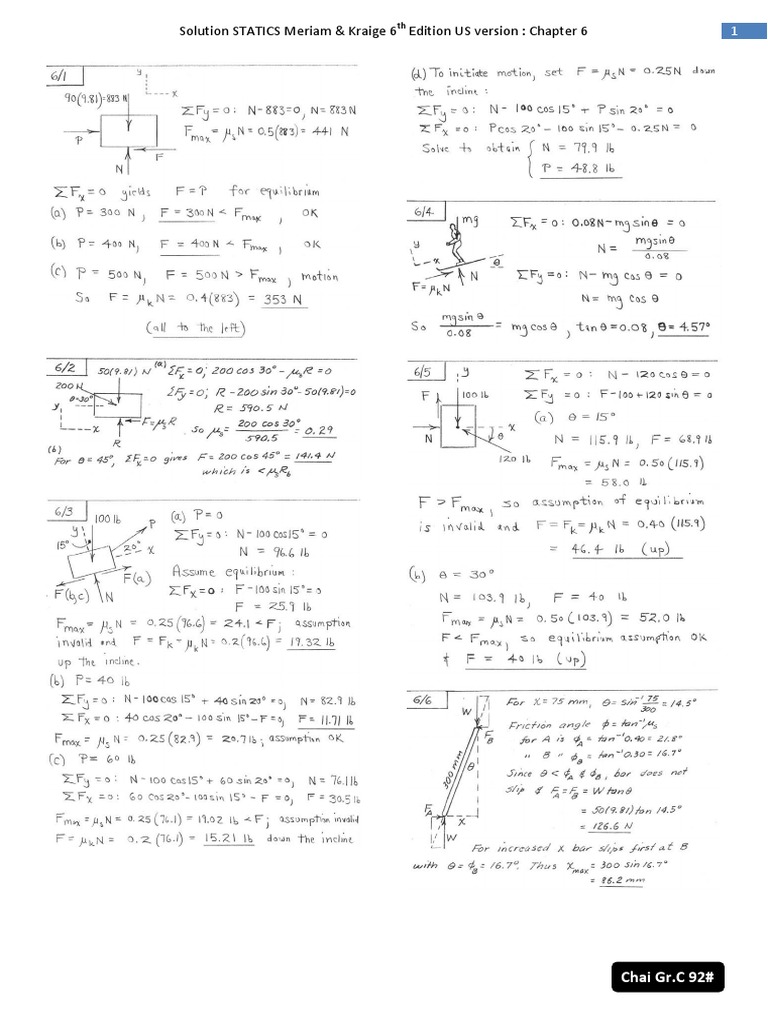 Solution STATICS Meriam & Kraige 6th Edition US version : Chapter 6
1
6/1
y
x
90(9.81)=883 N
P
F
N
ΣFy=0: N-883=0, N=883N
Fmax = μsN = 0.5(883) = 441 N
ΣFx=0 yields F=P for equilibrium
(a) P= 300 N, F= 300N < Fmax, OK
(b) P= 400 N, F = 400N < Fmax, OK
(c) P = 500 N, F = 500N > Fmax, motion
So F = μkN = 0.4(883) = 353 N
(all to the left)
6/2
50(9.81) N
200 N
θ=30°
y
x
F=μsR
R
(a) ΣFx=0; 200 cos 30° - μsR = 0
ΣFy=0; R-200 sin 30°-50(9.81)=0
R = 590.5 N
So μs = 200 cos 30° / 590.5 = 0.29
(b)
For θ=45°, ΣFx=0 gives F=200 cos 45° = 141.4 N
which is < μsRb
6/3
100 lb
P
y
15°
20°
x
F(a)
F(b,c)
N
(a) P=0
ΣFy=0: N-100 cos15° = 0
N = 96.6 lb
Assume equilibrium :
ΣFx=0: F-100 sin 15°=0
F = 25.9 lb
Fmax = μsN = 0.25(96.6) = 24.1 < F; assumption
invalid and F = Fk = μkN = 0.2(96.6) = 19.32 lb
up the incline.
(b) P= 40 lb
ΣFy=0: N-100 cos 15° + 40 sin 20° = 0, N= 82.9 lb
ΣFx=0: 40 cos 20° - 100 sin 15° - F=0, F= 11.71 lb
Fmax = μsN = 0.25(82.9) = 20.7 lb; assumption OK
(c) P= 60 lb
ΣFy=0: N-100 cos 15° + 60 sin 20° = 0, N= 76.1 lb
ΣFx=0: 60 cos 20°-100 sin 15° - F = 0, F= 30.5 lb
Fmax = μsN = 0.25(76.1) = 19.02 lb < F; assumption invalid
F = μkN = 0.2(76.1) = 15.21 lb down the incline
(d) To initiate motion, set F = μsN = 0.25N down
the incline :
ΣFy=0: N- 100 cos 15° + P sin 20° = 0
ΣFx=0: P cos 20° - 100 sin 15° - 0.25N = 0
Solve to obtain { N = 79.9 lb
P = 48.8 lb
6/4
mg
y
x
θ
N
F=μkN
ΣFx=0: 0.08N-mg sinθ = 0
N= mg sinθ / 0.08
ΣFy=0: N-mg cos θ = 0
N= mg cos θ
So mg sin θ / 0.08 = mg cosθ, tanθ=0.08, θ= 4.57°
6/5
y
F
100 lb
x
N
θ
120 lb
ΣFx = 0: N-120 cosθ = 0
ΣFy = 0: F-100+120 sinθ = 0
(a) θ = 15°
N = 115.9 lb, F= 68.9 lb
Fmax = μsN = 0.50(115.9)
= 58.0 lb
F > Fmax, so assumption of equilibrium
is invalid and F = Fk = μkN = 0.40(115.9)
= 46.4 lb (up)
(b) θ = 30°
N = 103.9 lb, F = 40 lb
Fmax = μsN = 0.50(103.9) = 52.0 lb
F < Fmax, so equilibrium assumption OK
+ F = 40 lb (up)
6/6
W
FB
300 mm
θ
FA
x
W
For x=75 mm, θ=sin⁻¹ 75/300 = 14.5°
Friction angle φ=tan⁻¹μs
for A is φA = tan⁻¹0.40=21.8°
" B " φB = tan⁻¹0.30=16.7°
Since θ < φA & φB, bar does not
slip & FA=FB = W tanθ
= 50(9.81) tan 14.5°
= 126.6 N
For increased x bar slips first at B
with θ= φB = 16.7°. Thus xmax = 300 sin 16.7°
= 86.2 mm
Chai Gr.C 92#